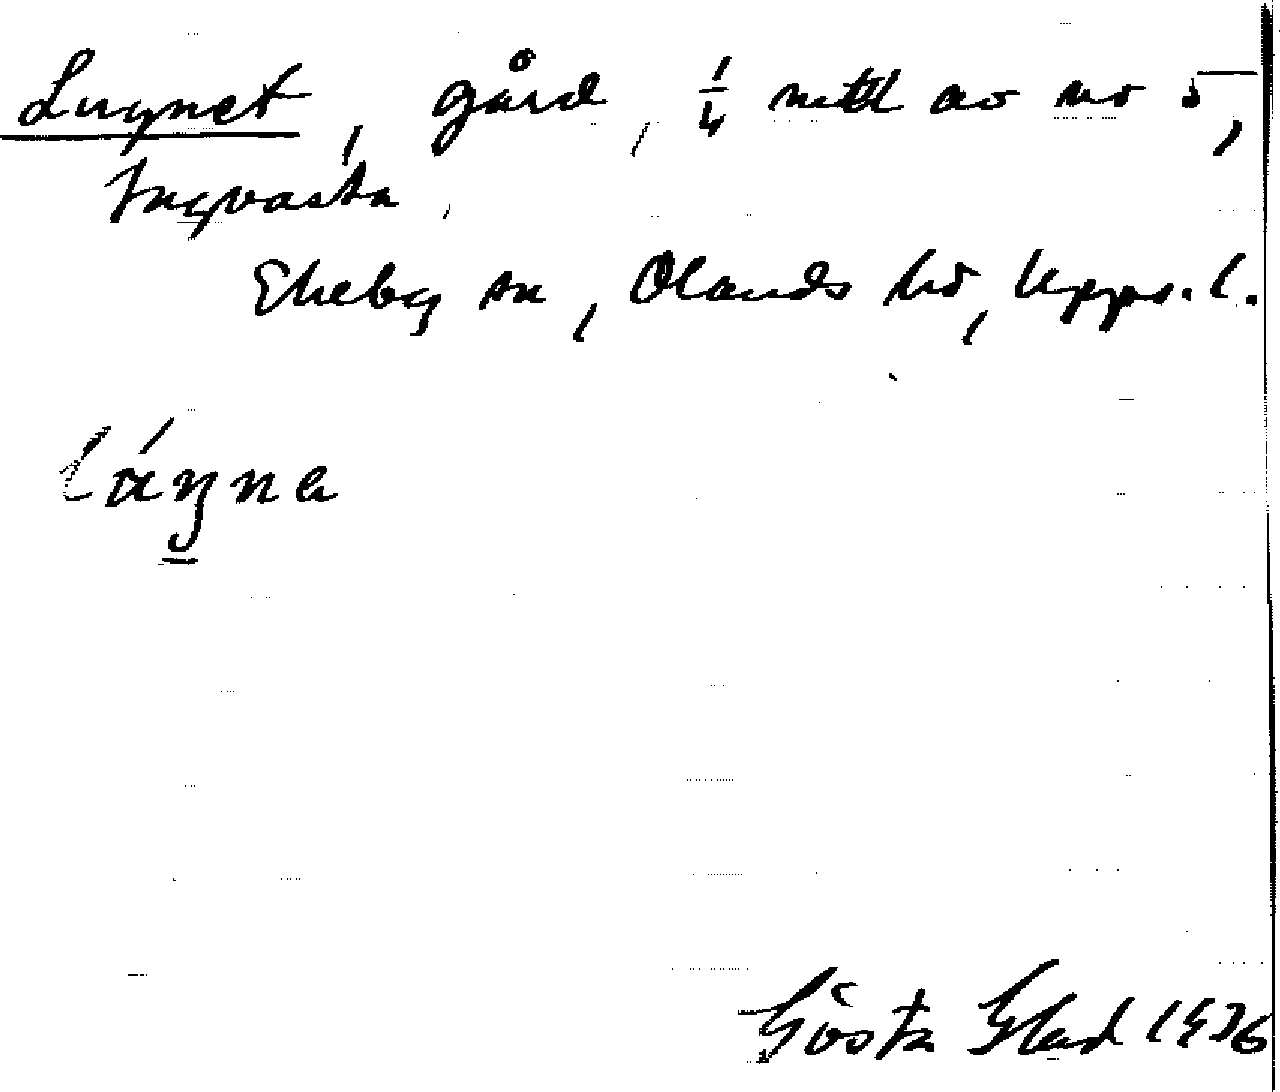 Lugnet, gård, 1/4 mtl av nr 5,
Ingvasta,
Ekeby sn, Olands hd, Upps. l.
láŋna
Gösta Glad 1936